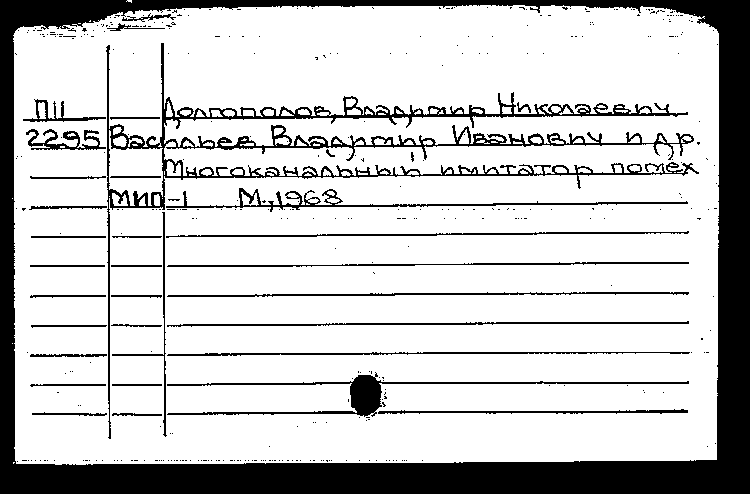 П11 Долгополов, Владимир Николаевич
2295 Васильев, Владимир Иванович и др.
Многоканальный имитатор помех
МИП-1 М., 1968